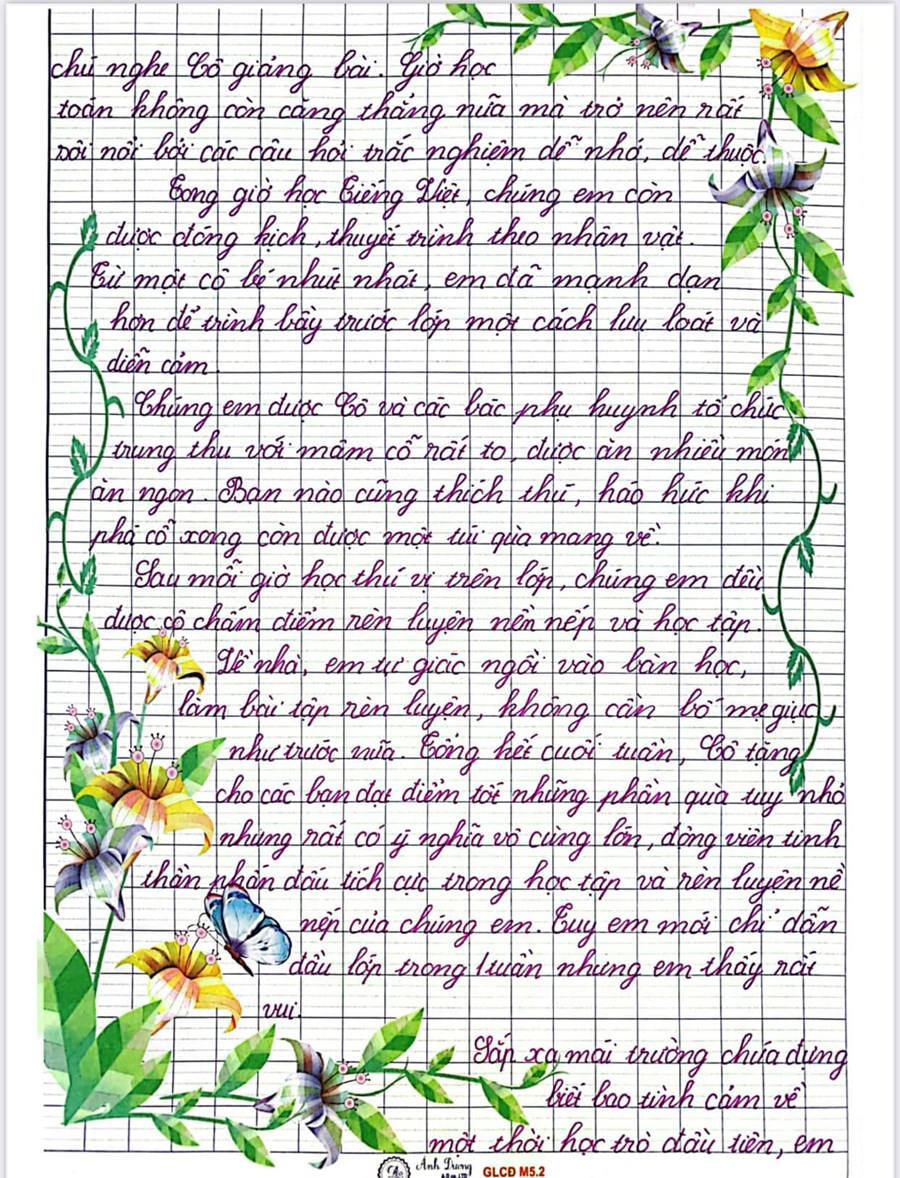 chú nghe Cô giảng bài. Giờ học
toán không còn căng thẳng nữa mà trở nên rất
sôi nổi bởi các câu hỏi trắc nghiệm dễ nhớ, dễ thuộc
Tong giờ học Tiếng Việt, chúng em còn
được đóng kịch, thuyết trình theo nhân vật.
Từ một cô bé nhút nhát, em đã mạnh dạn
hơn để trình bầy trước lớp một cách lưu loát và
diễn cảm.
Chúng em được Cô và các bác phụ huynh tổ chức
trung thu với mâm cỗ rất to, được ăn nhiều món
ăn ngon. Bạn nào cũng thích thú, háo hức khi
phá cỗ xong còn được một túi qùa mang về.
Sau mỗi giờ học thú vị trên lớp, chúng em đều
được cô chấm điểm rèn luyện nền nếp và học tập.
Về nhà, em tự giác ngồi vào bàn học,
làm bài tập rèn luyện, không cần bố mẹ giục
như trước nữa. Tổng kết cuối tuần, Cô tặng
cho các bạn đạt điểm tốt những phần qùa tuy nhỏ
nhưng rất có ý nghĩa vô cùng lớn, động viên tinh
thần phấn đấu tích cực trong học tập và rèn luyện nề
nếp của chúng em. Tuy em mới chỉ dẫn
đầu lớp trong 1 tuần nhưng em thấy rất
vui.
Sắp xa mái trường chứa đựng
biết bao tình cảm về
một thời học trò đầu tiên, em
Ánh Dương
GLCĐ M5.2